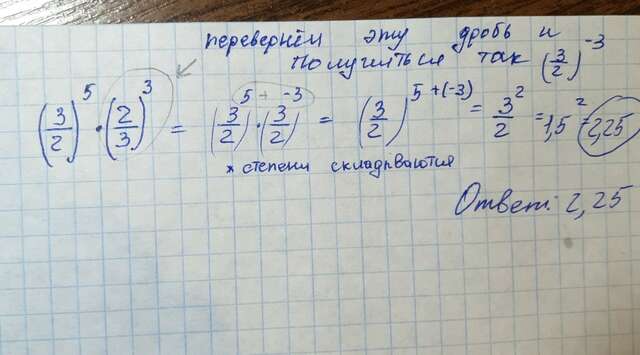 перевернём эту дробь и
получиться так (3/2)^-3
(3/2)^5 · (2/3)^3 = (3/2)^5 + · (3/2)^-3 = (3/2)^5+(-3) = 3/2^2 = 1,5^2 = 2,25
* степени складываются
Ответ: 2,25